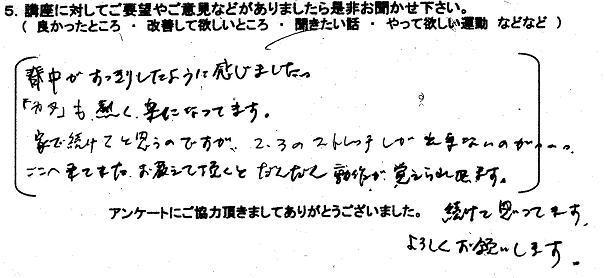 5. 講座に対してご要望やご意見などがありましたら是非お聞かせ下さい。
( 良かったところ ・ 改善して欲しいところ ・ 聞きたい話 ・ やって欲しい運動 などなど )
背中がすっきりしたように感じました。
「カタ」も熱く楽になってます。
家で続けてと思うのですが、2、3のストレッチしか出来ないのが・・・・。
ここへ来てまたお教えて頂くとだんだん動作が覚えられ ます。
アンケートにご協力頂きましてありがとうございました。 続けて思ってます。
よろしくお願いします。